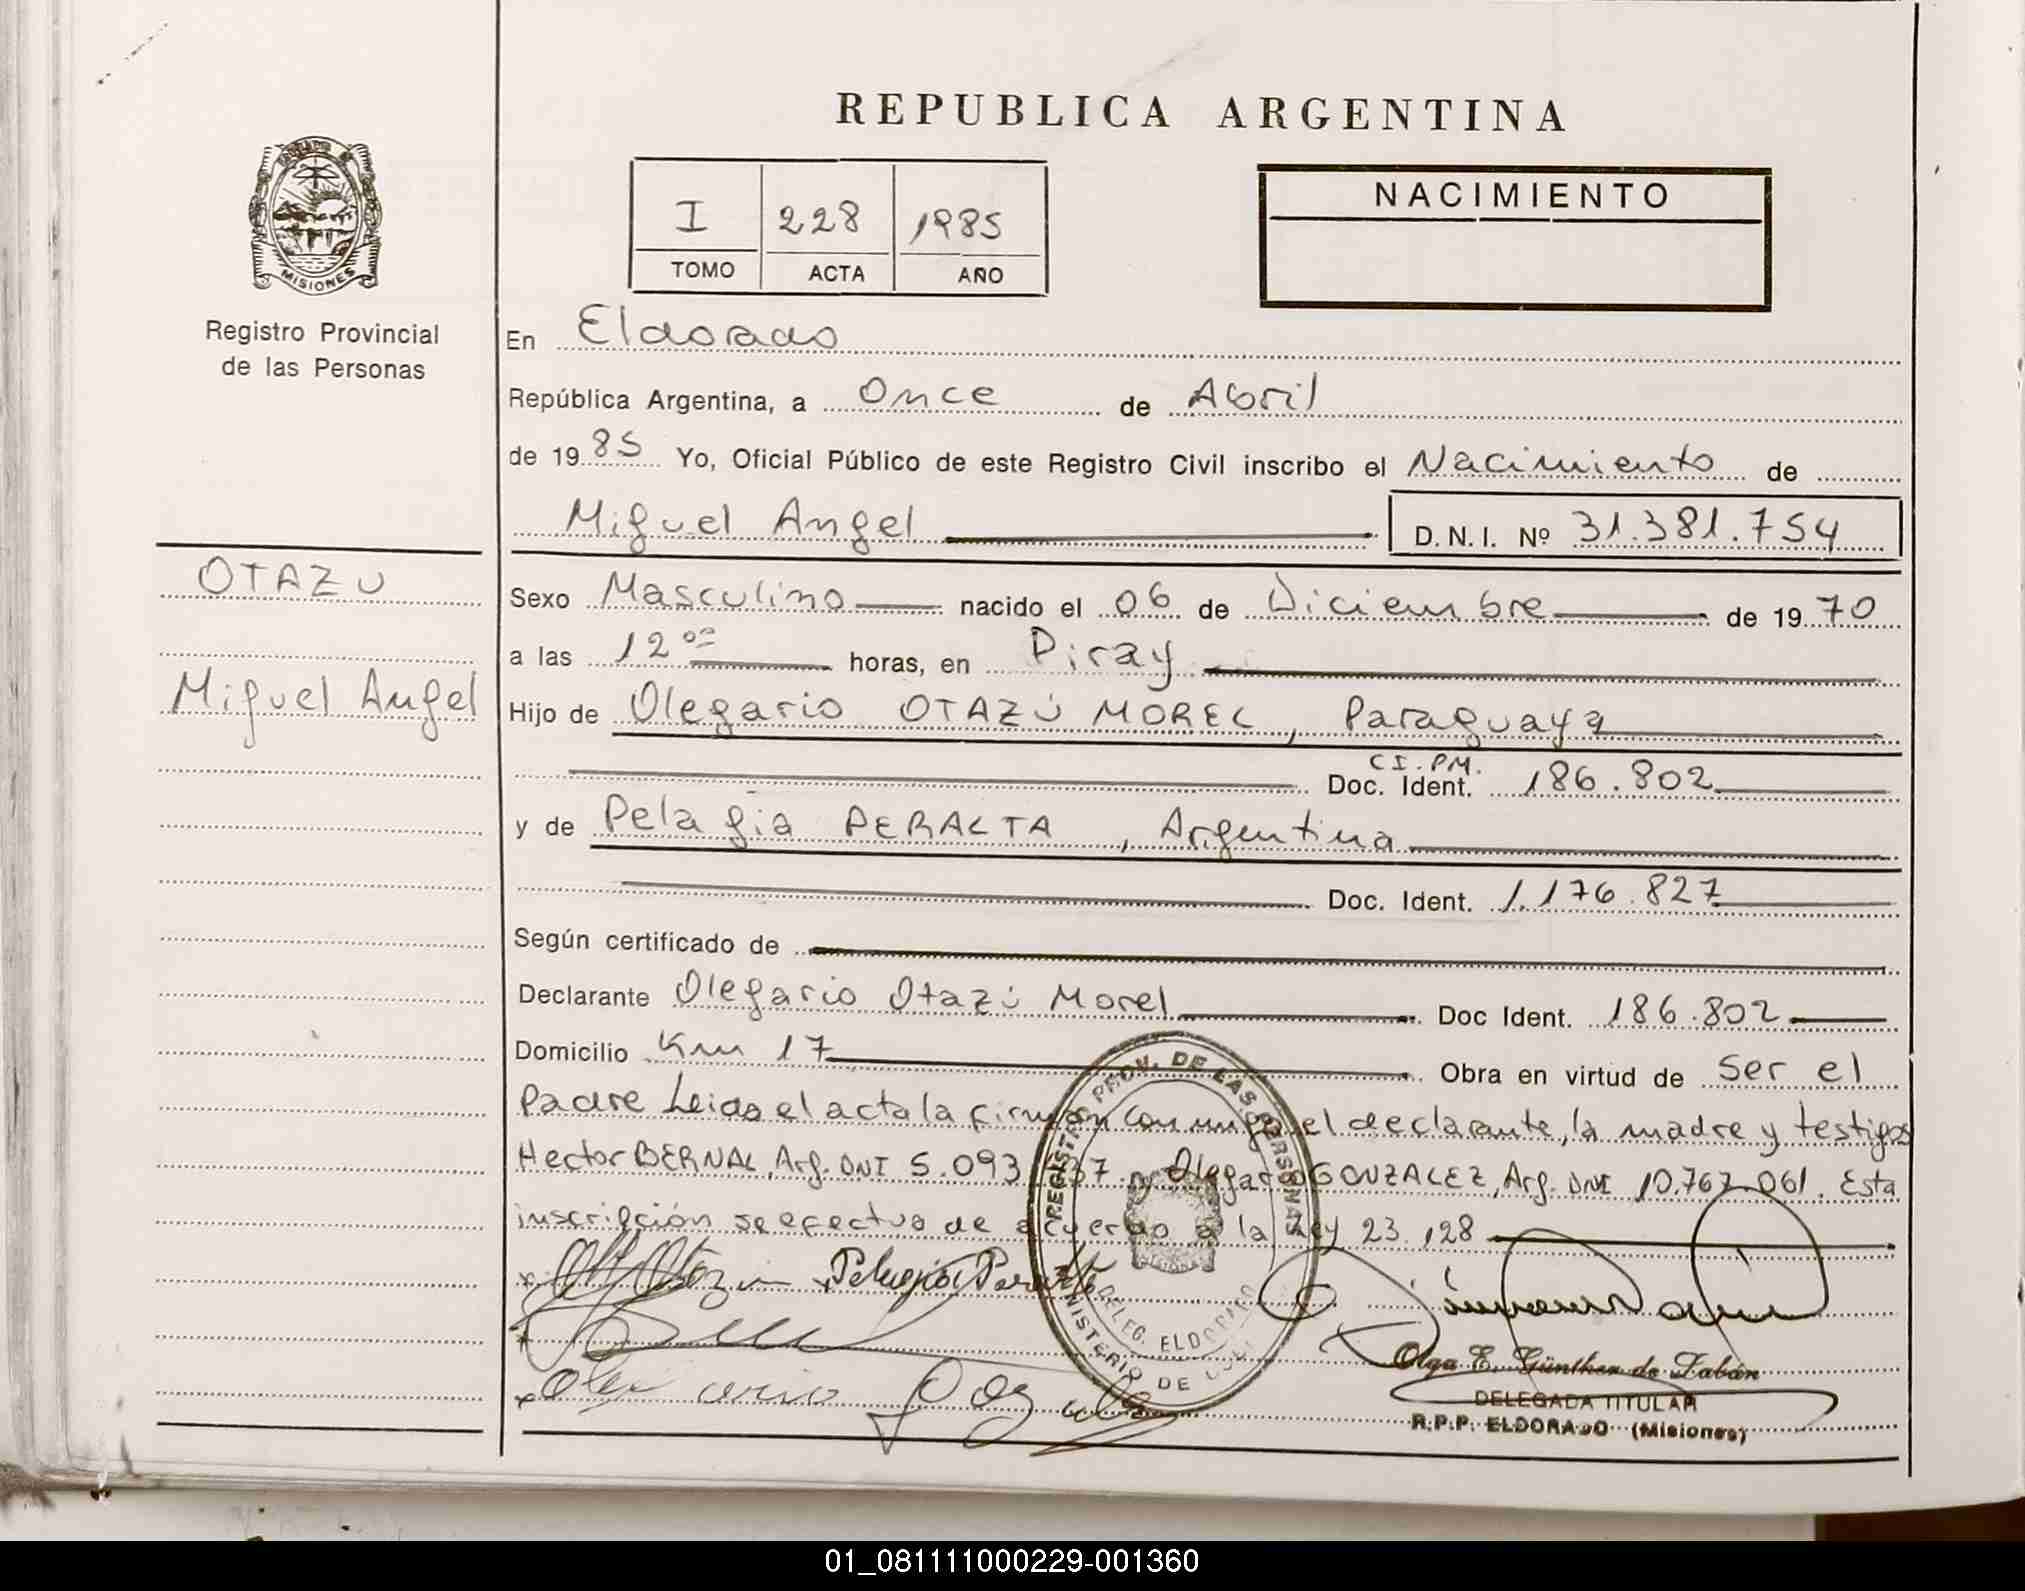 REPUBLICA ARGENTINA
I 228 1985
TOMO ACTA AÑO
NACIMIENTO
MISIONES
Registro Provincial
de las Personas
OTAZU
Miguel Angel
En Eldorado
República Argentina, a Once de Abril
de 1985 Yo, Oficial Público de este Registro Civil inscribo el Nacimiento de
Miguel Angel D.N.I. Nº 31.381.754
Sexo Masculino nacido el 06 de Diciembre de 1970
a las 12 00 horas, en Piray
Hijo de Olegario OTAZÚ MOREL, Paraguaya
CI. PM.
Doc. Ident. 186.802
y de Pelagia PERALTA, Argentina
Doc. Ident. 1.176.827
Según certificado de
Declarante Olegario Otazú Morel Doc Ident. 186.802
Domicilio Km 17 Obra en virtud de ser el
Padre Leida el acta la firman conmigo el declarante, la madre y testigos
Hector BERNAL, Arg. DNI 5.093. 37 y Olegario GONZALEZ, Arg. DNI 10.767.061. Esta
inscripción se efectua de acuerdo a la Ley 23.128
Pelagia Peralta
REGISTRO PROV. DE LAS PERSONAS
DELEG. ELDORADO
MINISTERIO DE
Olga E. Günther de Zabán
DELEGADA TITULAR
R.P.P. ELDORADO (Misiones)
01_081111000229-001360